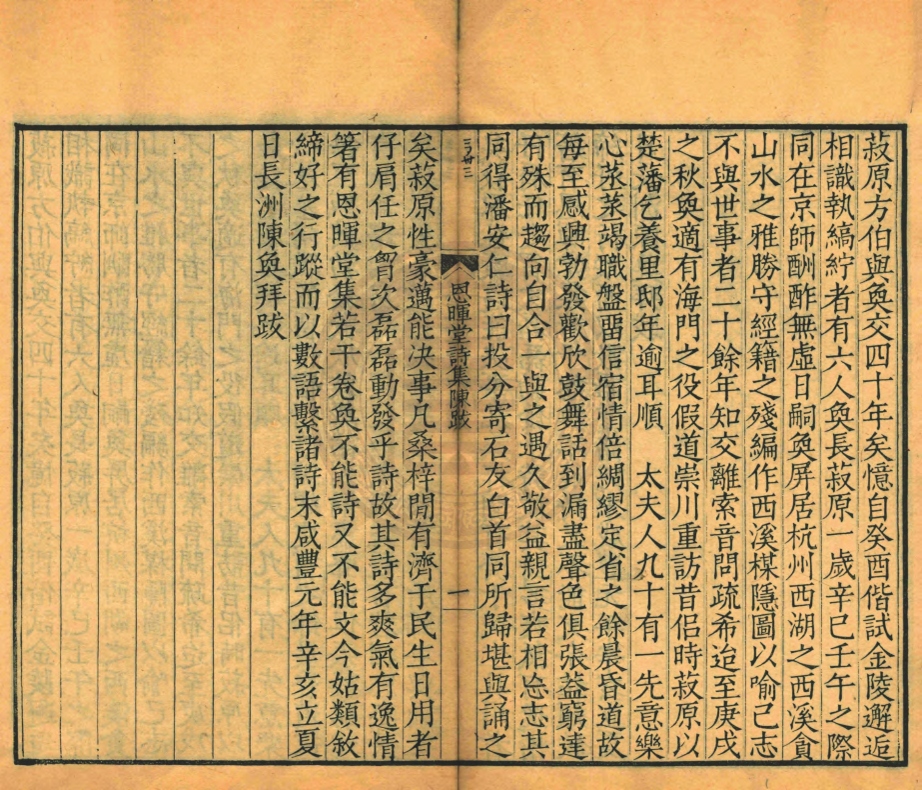 菽原方伯與奐交四十年矣憶自癸酉偕試金陵邂逅
相識執縞紵者有六人奐長菽原一歲辛巳壬午之際
同在京師酬酢無虛日嗣奐屏居杭州西湖之西溪貪
山水之雅勝守經籍之殘編作西溪楳隱圖以喻己志
不與世事者二十餘年知交離索音問疏希迨至庚戌
之秋奐適有海門之役假道崇川重訪昔侶時菽原以
楚藩乞養里邸年逾耳順　太夫人九十有一先意樂
心蒸萊竭職盤畱信宿情倍綢繆定省之餘晨昏道故
每至感興勃發歡欣鼓舞話到漏盡聲色俱張益窮達
有殊而趨向自合一與之遇久敬益親言若相㤀志其
同得潘安仁詩曰投分寄石友白首同所歸堪與誦之
三卅三
恩暉堂詩集陳跋
一
矣菽原性豪邁能决事凡桑梓閒有濟于民生日用者
仔肩任之胷次磊磊動發乎詩故其詩多爽氣有逸情
箸有恩暉堂集若干卷奐不能詩又不能文今姑類敘
締好之行蹤而以數語繫諸詩末咸豐元年辛亥立夏
日長洲陳奐拜跋